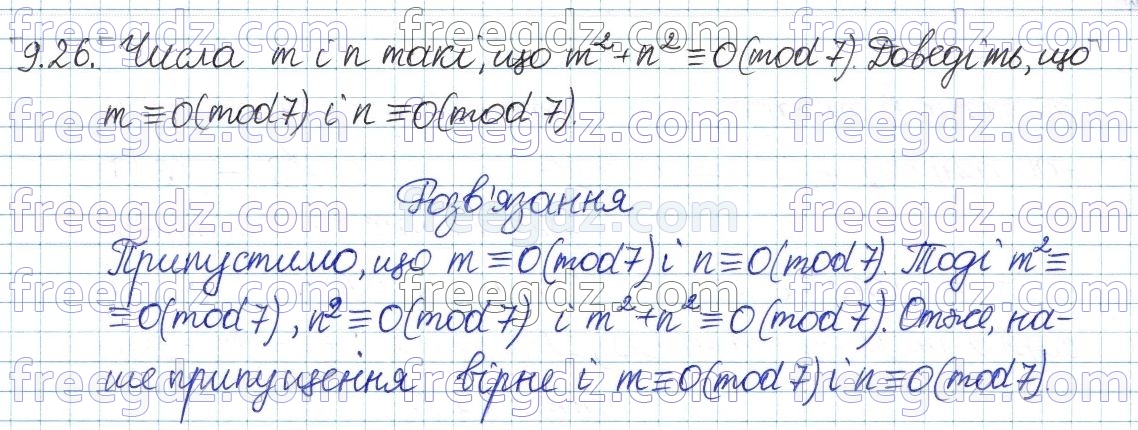 9.26. Числа m і n такі, що m² + n² ≡ 0 (mod 7). Доведіть, що
m ≡ 0 (mod 7) і n ≡ 0 (mod 7).
Розв'язання
Припустимо, що m ≡ 0 (mod 7) і n ≡ 0 (mod 7). Тоді m² ≡
≡ 0 (mod 7), n² ≡ 0 (mod 7) і m² + n² ≡ 0 (mod 7). Отже, на-
ше припущення вірне і m ≡ 0 (mod 7) і n ≡ 0 (mod 7).
freegdz.com